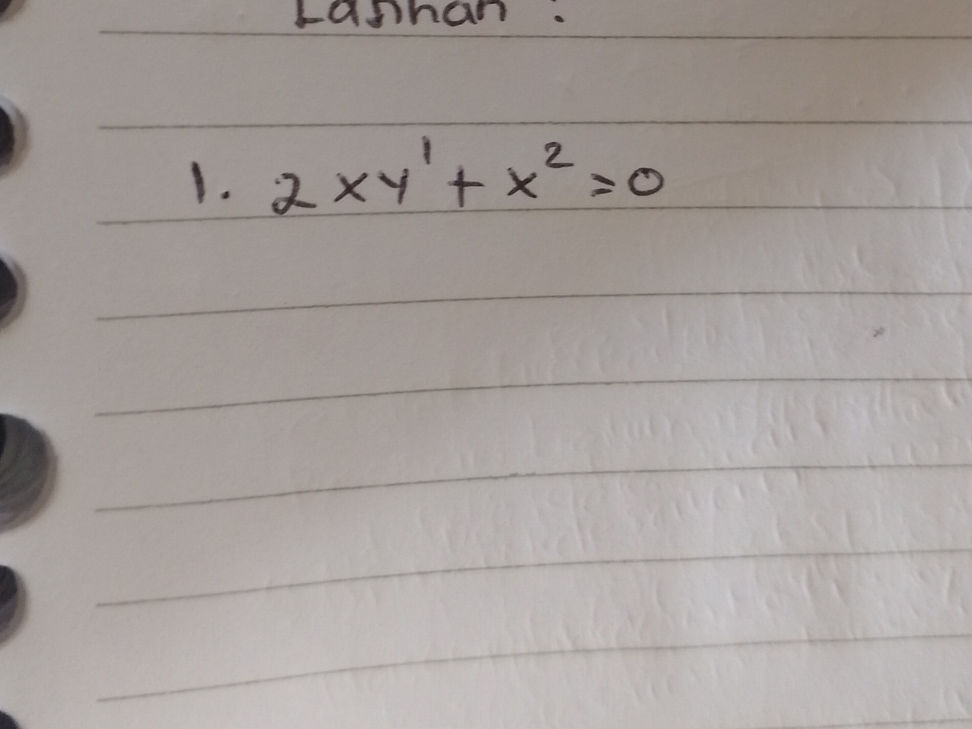 Latihan :
1. 2xy' + x² = 0